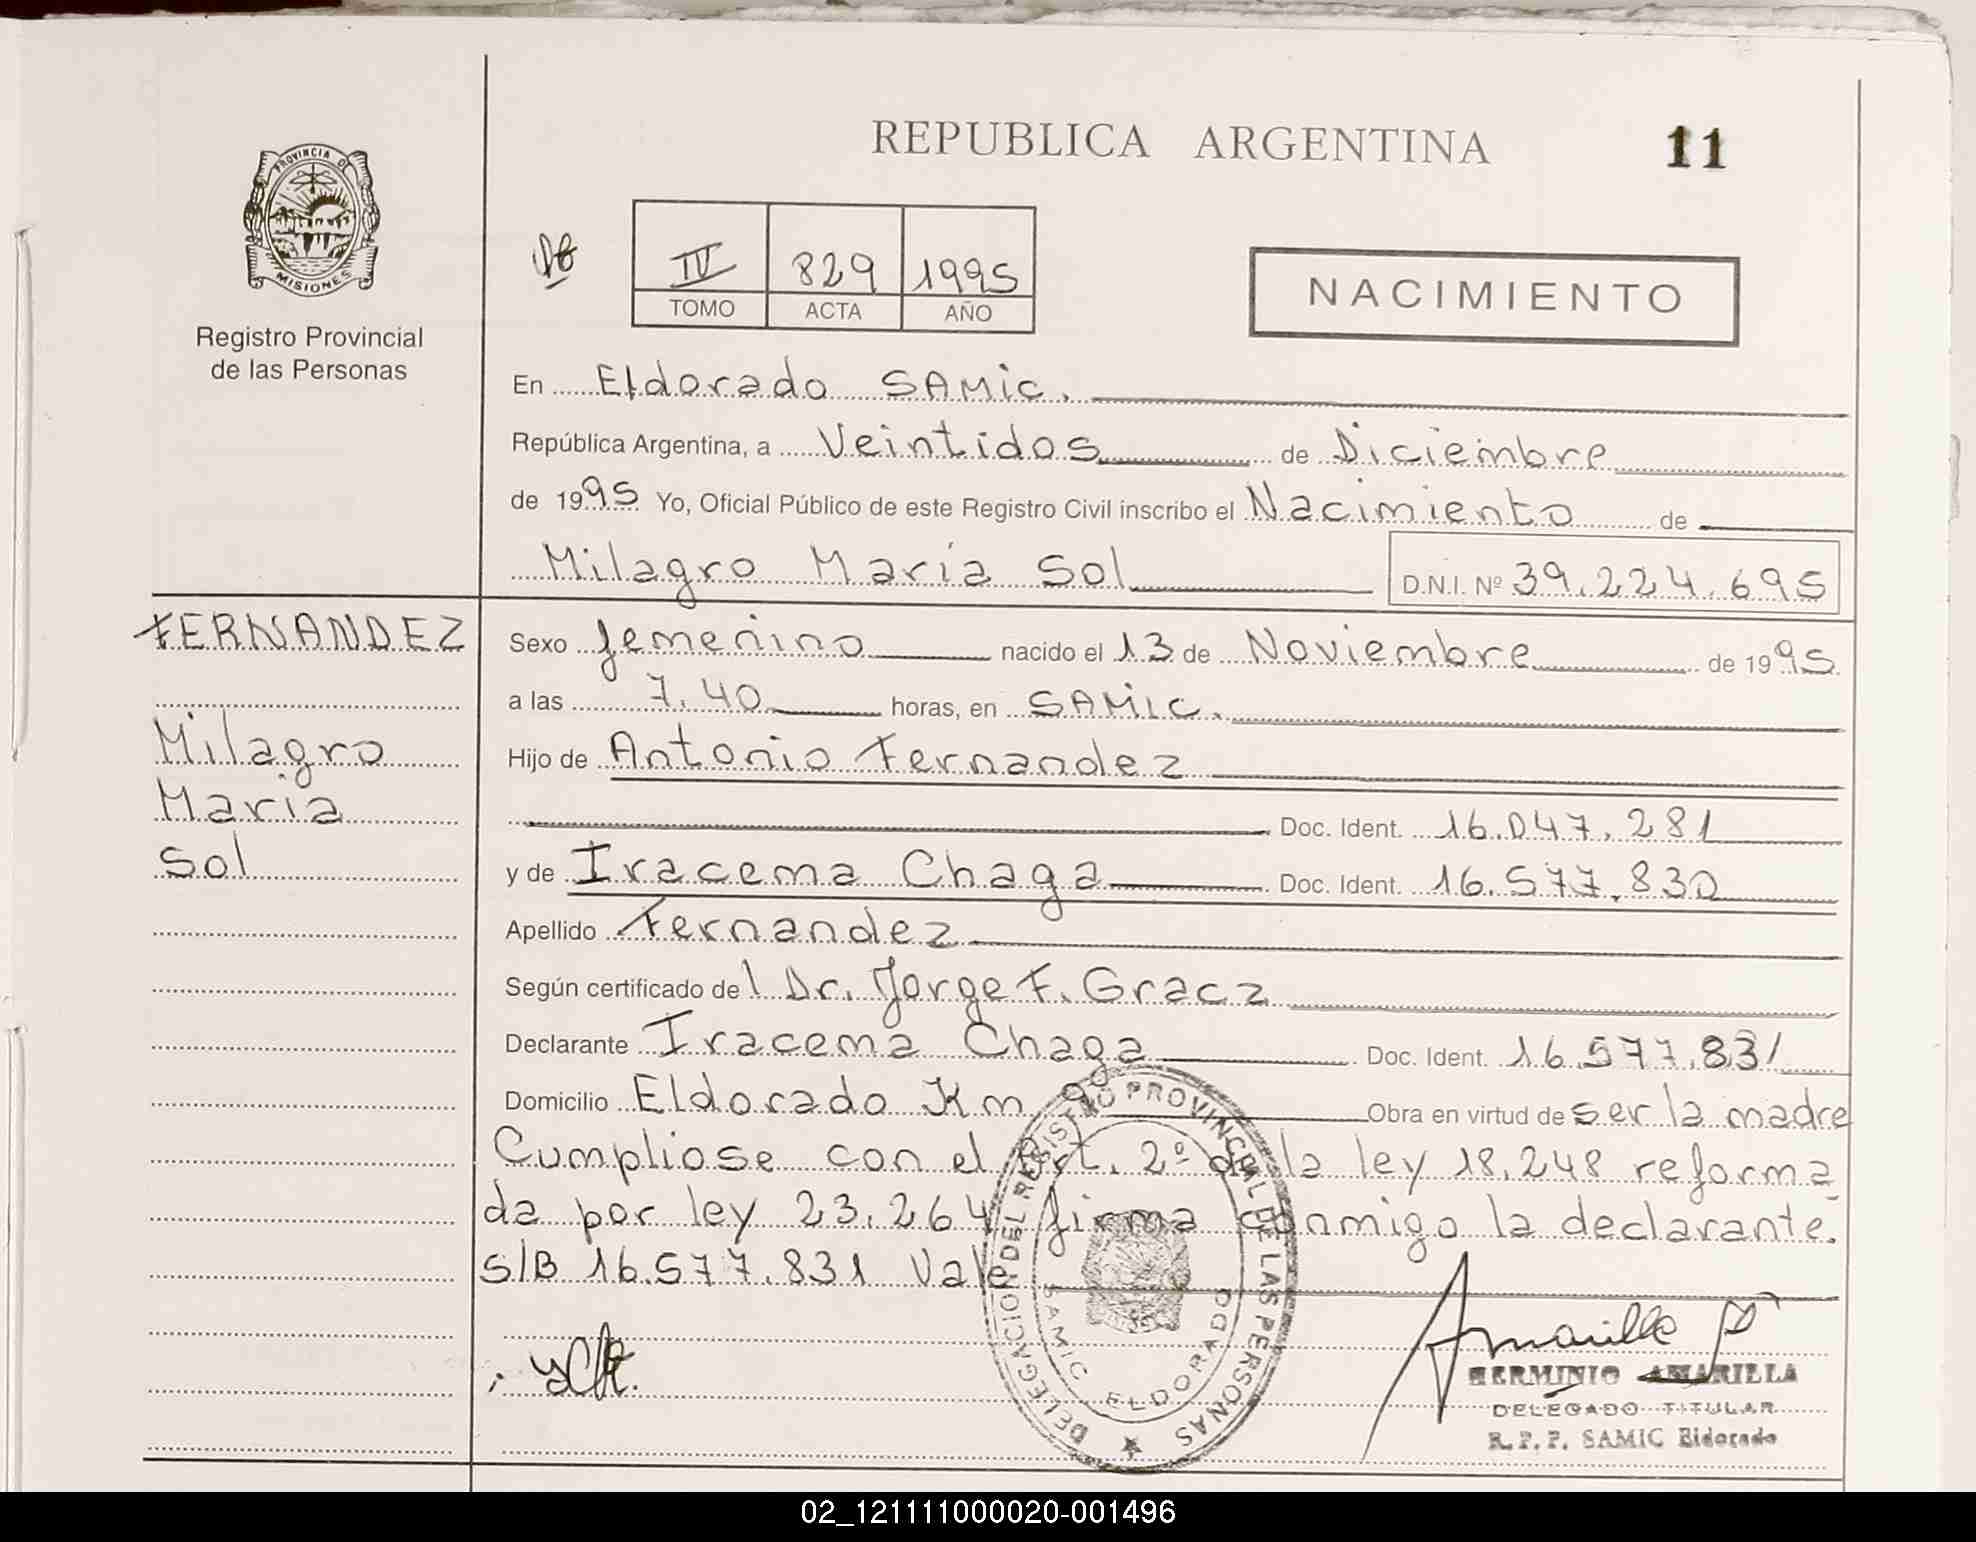 REPUBLICA ARGENTINA
11
PROVINCIA D
MISIONES
Registro Provincial
de las Personas
IV 829 1995
TOMO ACTA AÑO
NACIMIENTO
En Eldorado SAMic.
República Argentina, a Veintidos de Diciembre
de 1995 Yo, Oficial Público de este Registro Civil inscribo el Nacimiento de
Milagro María Sol D.N.I. Nº 39.224.695
FERNANDEZ
Milagro
Maria
Sol
Sexo femenino nacido el 13 de Noviembre de 1995
a las 7.40 horas, en SAMic.
Hijo de Antonio Fernandez
Doc. Ident. 16.047.281
y de Iracema Chaga Doc. Ident. 16.577.830
Apellido Fernandez
Según certificado del Dr. Jorge F. Gracz
Declarante Iracema Chaga Doc. Ident. 16.577.831
Domicilio Eldorado Km 9 Obra en virtud de ser la madre
Cumpliose con el Art. 2º de la ley 18.248 reforma
da por ley 23.264 firma conmigo la declarante.
S/B 16.577.831 Vale
DELEGACION DEL REGISTRO PROVINCIAL DE LAS PERSONAS
SAMIC ELDORADO
Amarilla
HERMINIO AMARILLA
DELEGADO TITULAR
R. P. P. SAMIC Eldorado
02_121111000020-001496